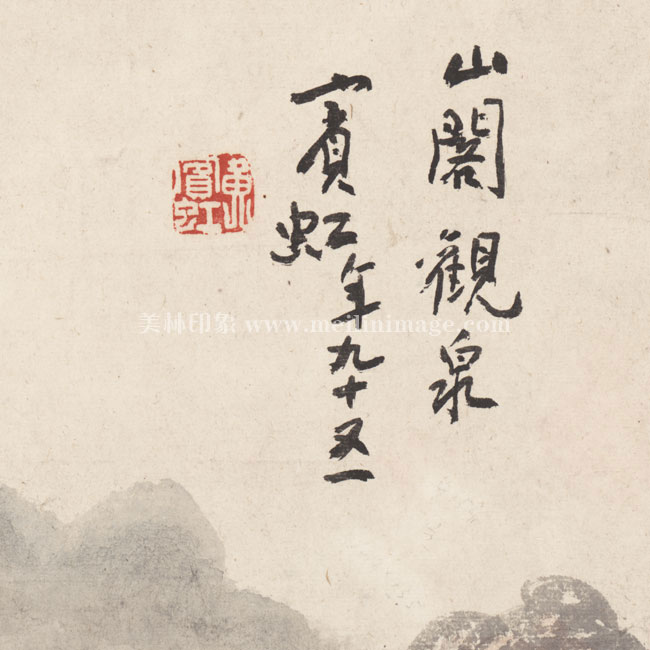 山閣觀泉
賓虹年九十又一
黃賓虹
美林印象 www.meilinimage.com